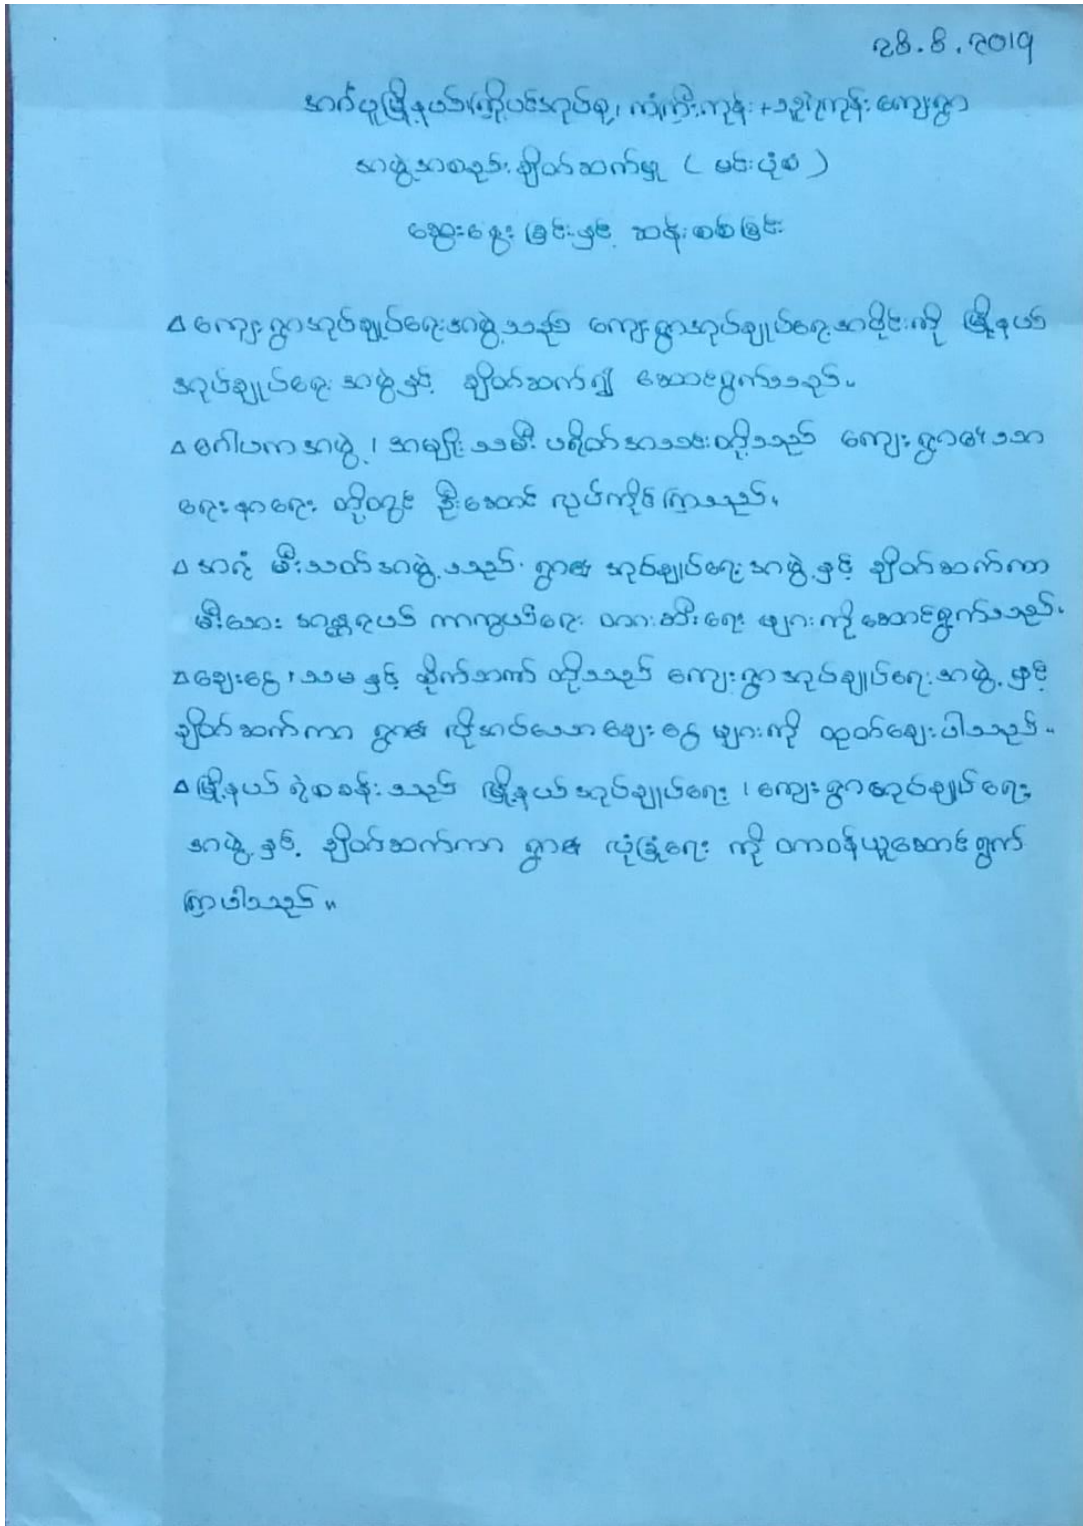 ၂၈.၈.၂၀၁၅
အင်္ဂပူမြို့နယ်၊ကြိုပင်အုပ်စု၊ ကံကြီးကုန်း + ကုန်း ကျေးရွာ
အဖွဲ့အစည်း ချိတ်ဆက်မှု ( မင်းပုံစံ )
ဆွေးနွေး ခြင်းနှင့် ဆန်းစစ်ခြင်း
∆ ကျေးရွာအုပ်ချုပ်ရေးအဖွဲ့သည် ကျေးရွာအုပ်ချုပ်ရေးအပိုင်းကို မြို့နယ်
အုပ်ချုပ်ရေး အဖွဲ့နှင့် ချိတ်ဆက်၍ ဆောင်ရွက်သည်။
∆ ဂေါပကအဖွဲ့ ၊ အမျိုးသမီး ပရိတ်အသင်းတို့သည် ကျေးရွာ၏ သာ
ရေးနာရေး တို့တွင် ဦးဆောင် လုပ်ကိုင်ကြသည်။
∆ အရံ မီးသတ်အဖွဲ့သည် ရွာ၏ အုပ်ချုပ်ရေးအဖွဲ့နှင့် ချိတ်ဆက်ကာ
မီးဘေး အန္တရာယ် ကာကွယ်ရေး တားဆီးရေး များကိုဆောင်ရွက်သည်။
∆ ချေးငွေ ၊ သမ နှင့် စိုက်ဘဏ် တို့သည် ကျေးရွာအုပ်ချုပ်ရေးအဖွဲ့ နှင့်
ချိတ်ဆက်ကာ ရွာ၏ လိုအပ်သောချေးငွေ များကို ထုတ်ချေးပါသည်။
∆ မြို့နယ် ရဲစခန်းသည် မြို့နယ်အုပ်ချုပ်ရေး ၊ ကျေးရွာအုပ်ချုပ်ရေး
အဖွဲ့ နှင့် ချိတ်ဆက်ကာ ရွာ၏ လုံခြုံရေး ကို တာဝန်ယူဆောင်ရွက်
ကြပါသည်။